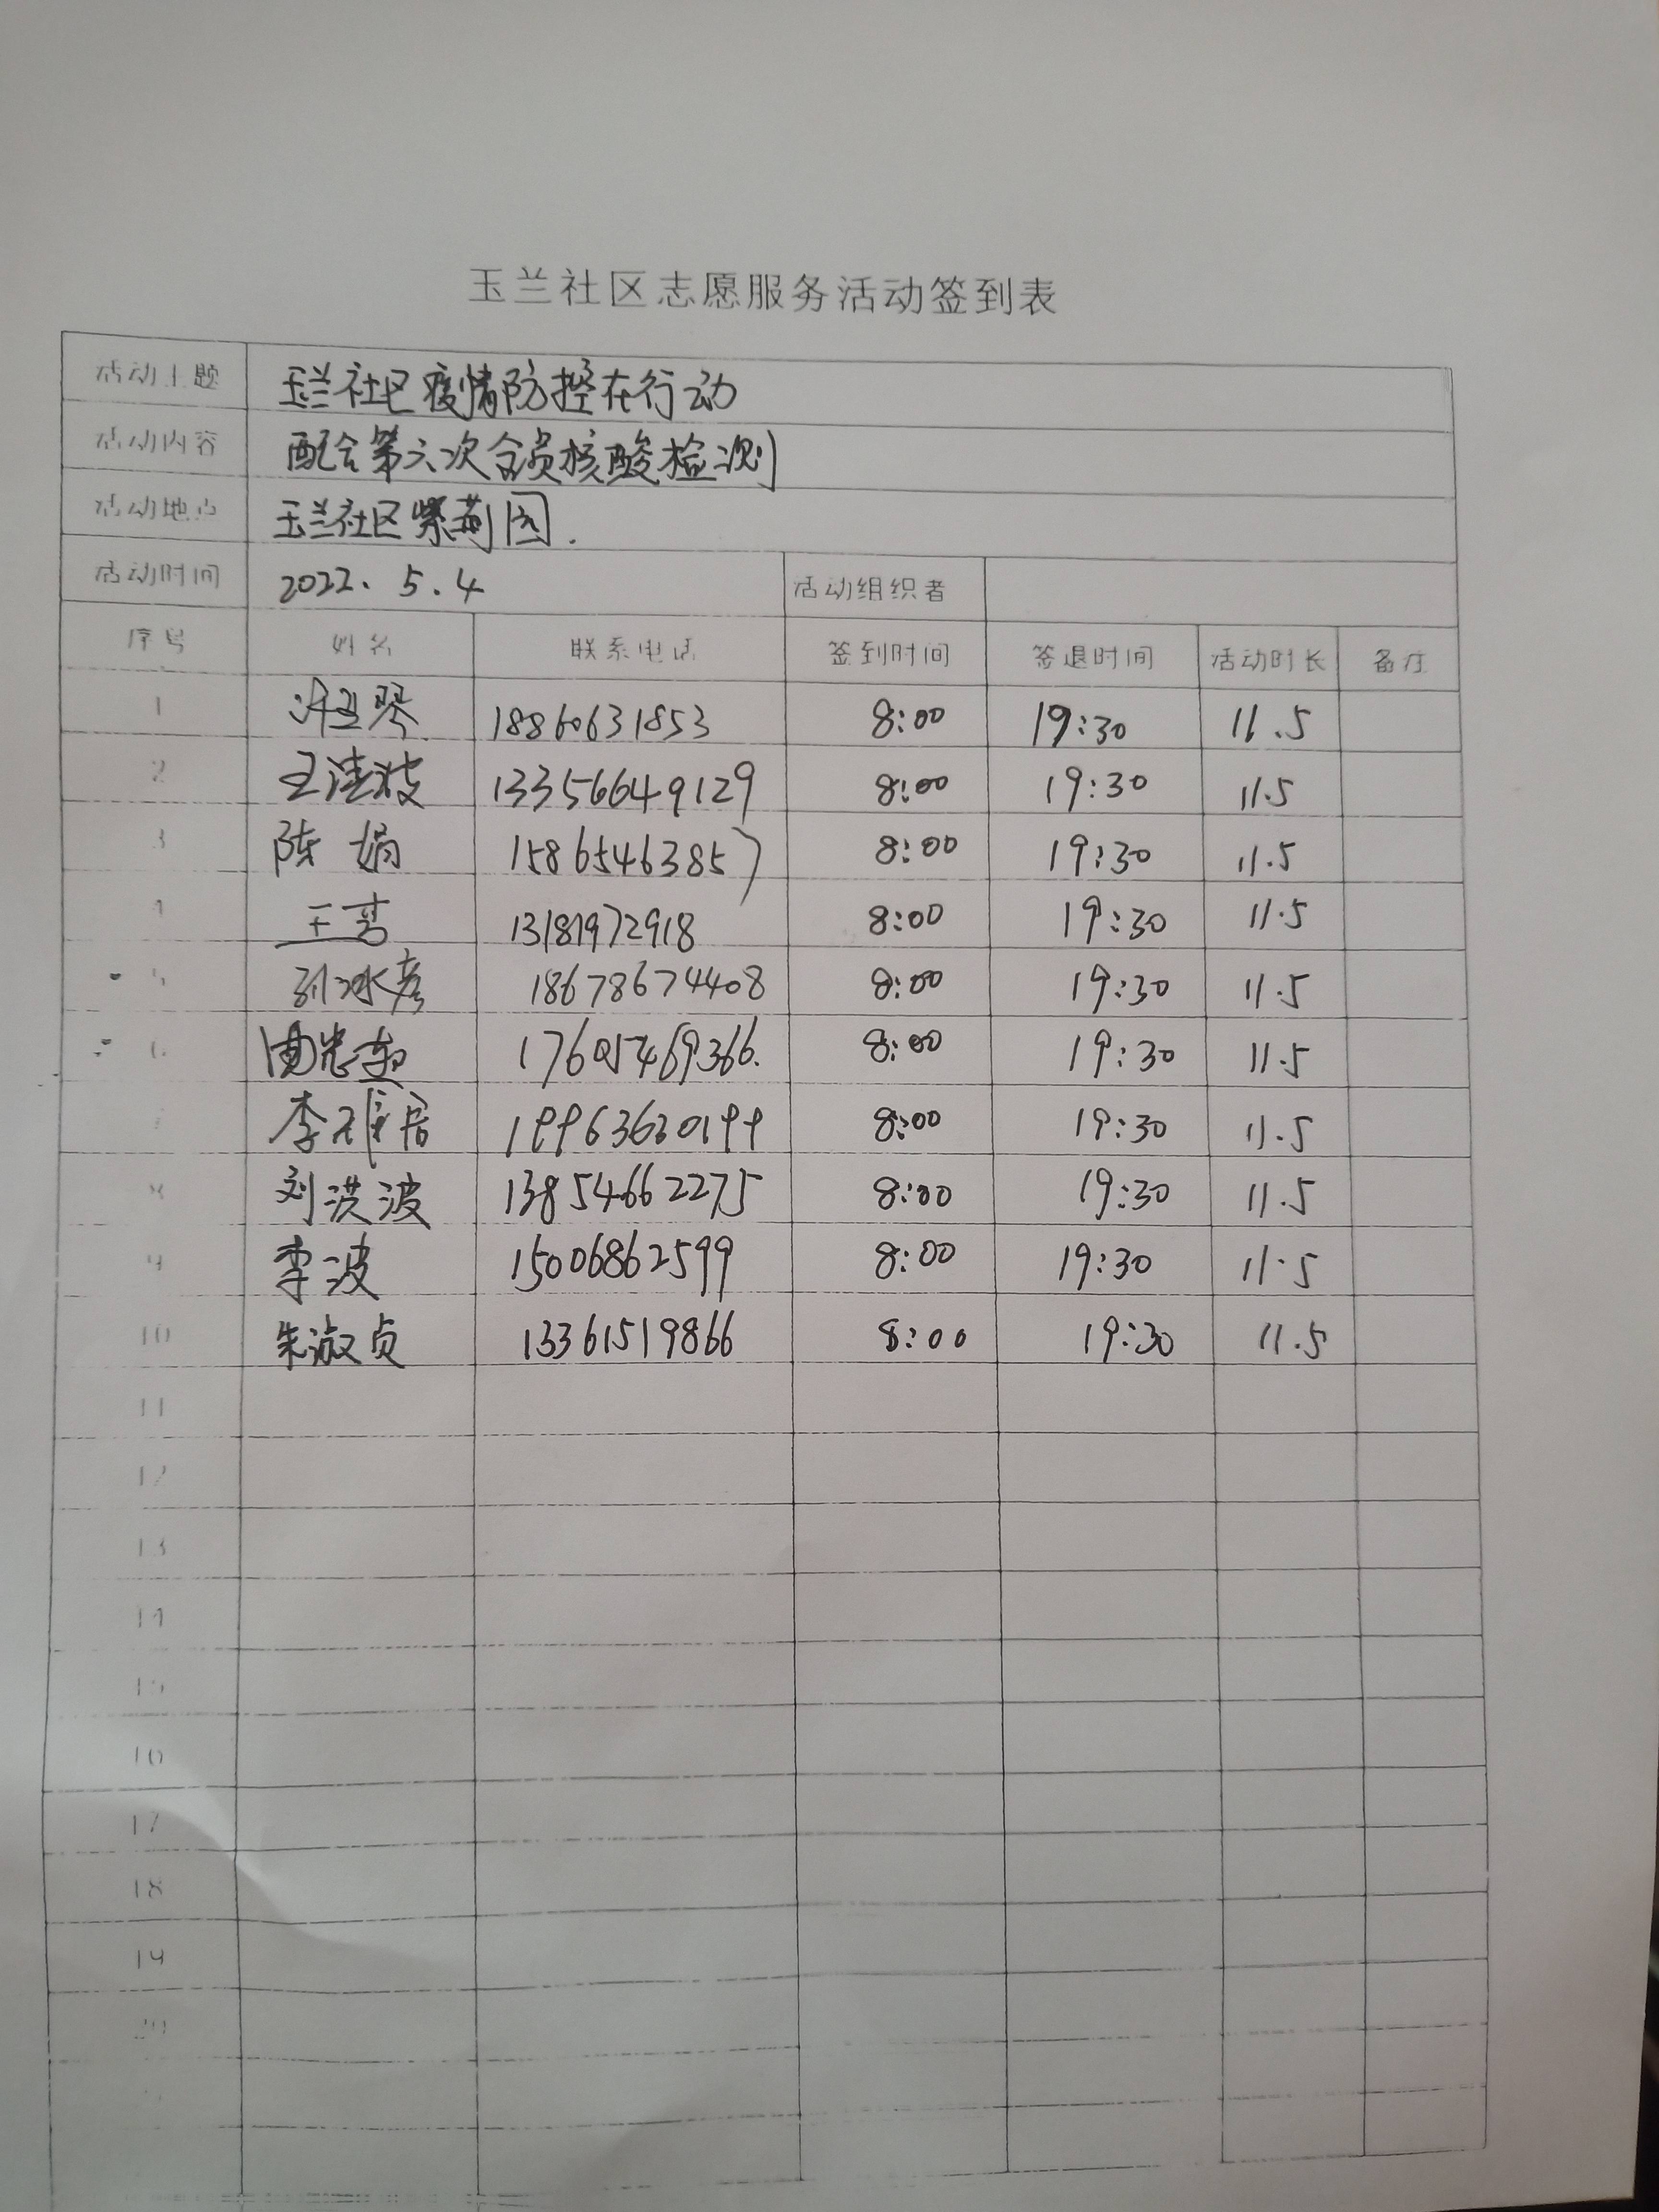 玉兰社区志愿服务活动签到表
活动主题 玉兰社区疫情防控在行动
活动内容 配合第六次全员核酸检测
活动地点 玉兰社区紫荆园.
活动时间 2022. 5.4 活动组织者
序号 姓名 联系电话 签到时间 签退时间 活动时长 备注
1 18860631853 8:00 19:30 11.5
2 133566649129 8:00 19:30 11.5
3 陈娟 15865463857 8:00 19:30 11.5
4 13181972918 8:00 19:30 11.5
5 孙冰彦 18678674408 8:00 19:30 11.5
6 17605469366. 8:00 19:30 11.5
李 19963630199 8:00 19:30 11.5
8 刘洪波 13854662275 8:00 19:30 11.5
9 李波 15006862599 8:00 19:30 11.5
10 朱淑贞 13361519866 8:00 19:30 11.5
11
12
13
14
15
16
17
18
19
20